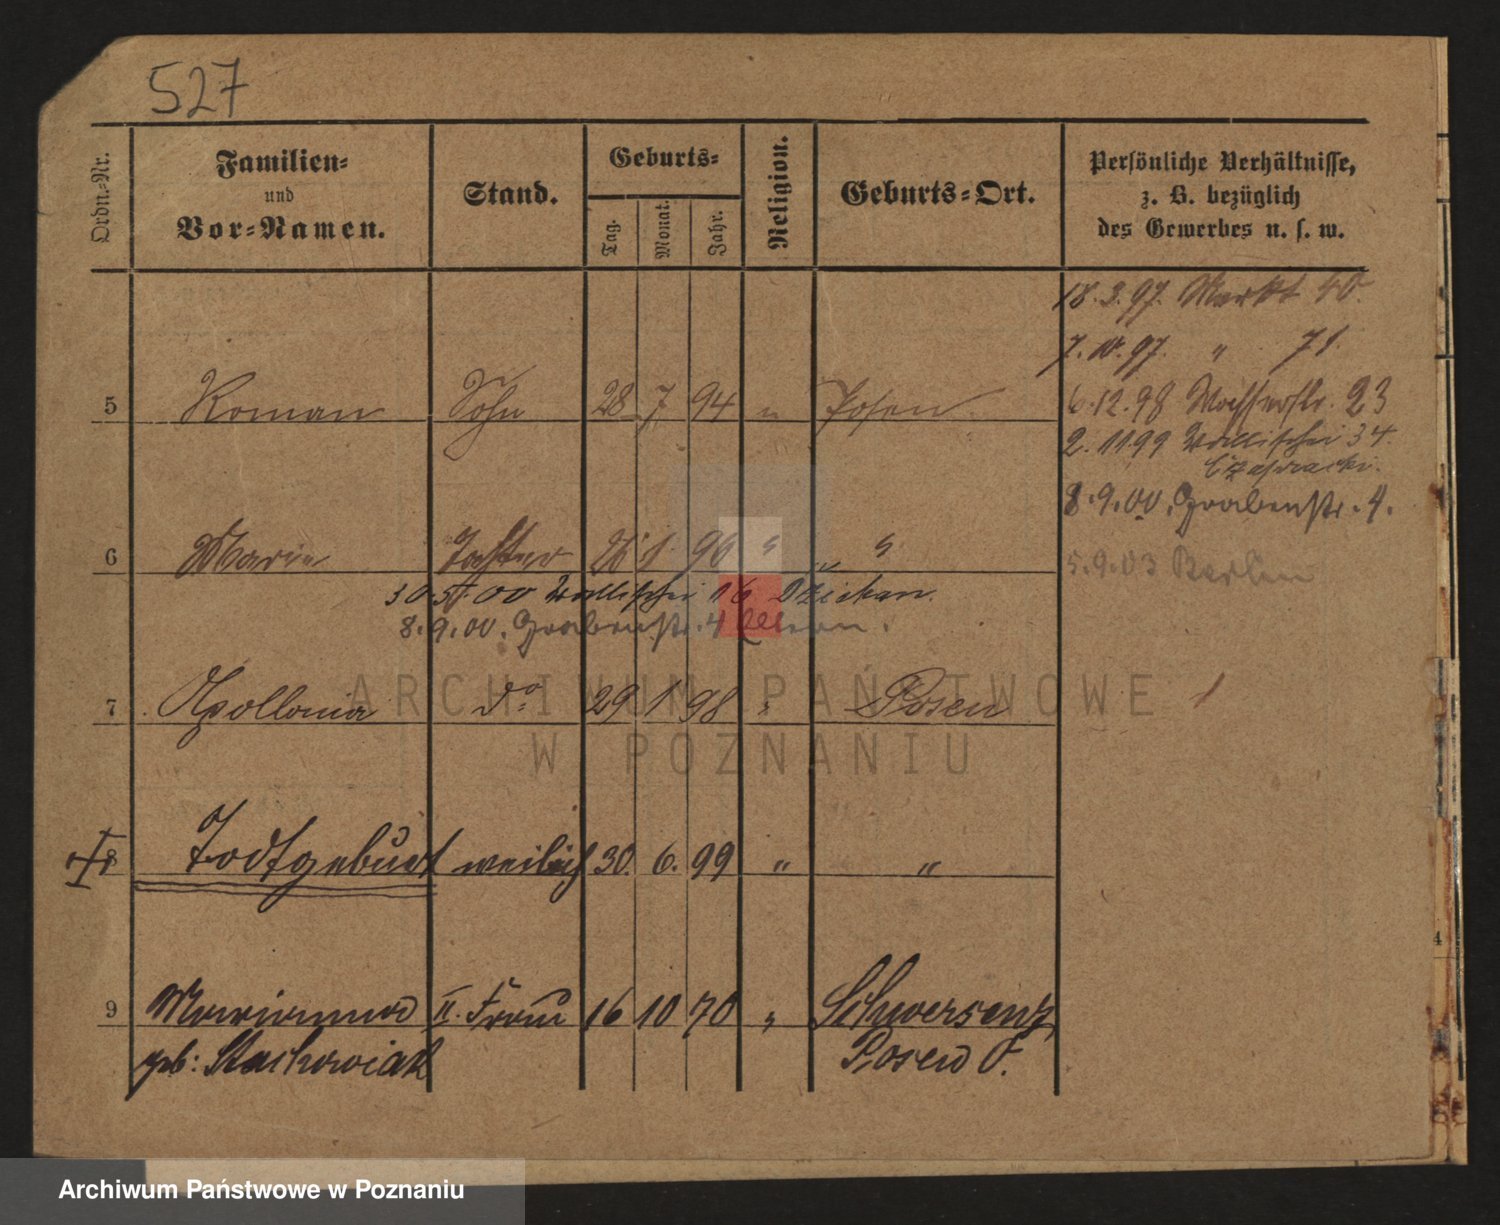 527
Ordn.-Nr.
Familien-
und
Vor-Namen.
Stand.
Geburts-
Tag.
Monat.
Jahr.
Religion.
Geburts-Ort.
Persönliche Verhältnisse,
z. B. bezüglich
des Gewerbes u. s. w.
18.3.97. Markt 40.
7.10.97. " 71.
5 Roman Sohn 28 7 94 " Posen
6.12.98 Wasserstr. 23
2.11.99 Wallischei 34.
8.9.00. Grabenstr. 4.
6 Marie Tochter 26 1 96 " " "
5.9.03 Berlin
30.5.00 Wallischei 16 Dzickan.
8.9.00. Grabenstr. 4 Eltern.
7 Apollonia do 29 1 98 " Posen 1
ARCHIWUM PAŃSTWOWE
W POZNANIU
8 Todtgeburt weiblich 30. 6. 99 " "
9 Marianna II. Frau 16 10 70 " Schwersenz
geb: Stachowiak Posen O.
4
Archiwum Państwowe w Poznaniu